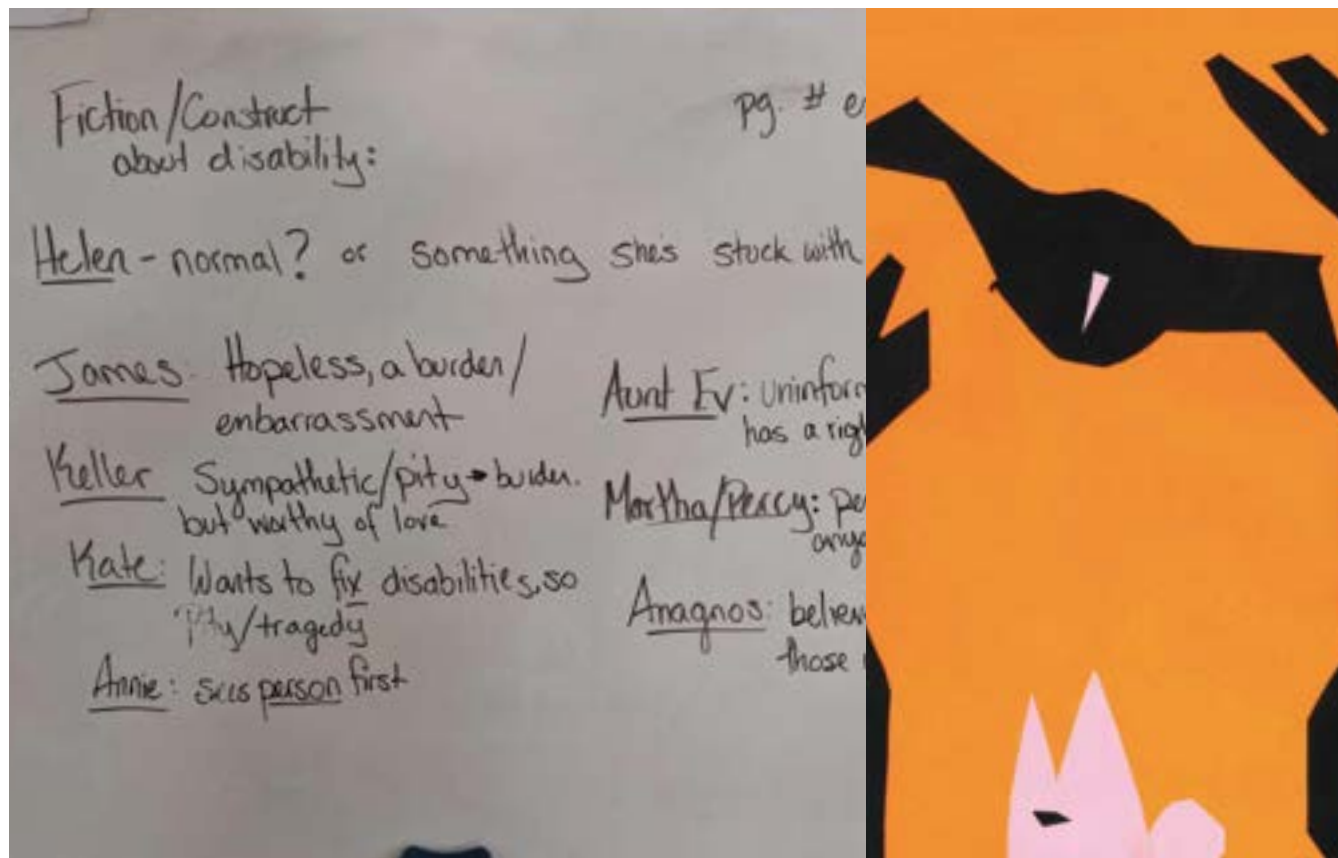 Fiction/Construct
about disability:
pg. #
Helen - normal? or something she's stuck with
James: Hopeless, a burden/
embarrassment
Keller Sympathetic/pity → burden.
but worthy of love
Kate: Wants to fix disabilities, so
pity/tragedy
Annie: sees person first
Aunt Ev:
has a
Martha/Percy:
Anagnos:
those